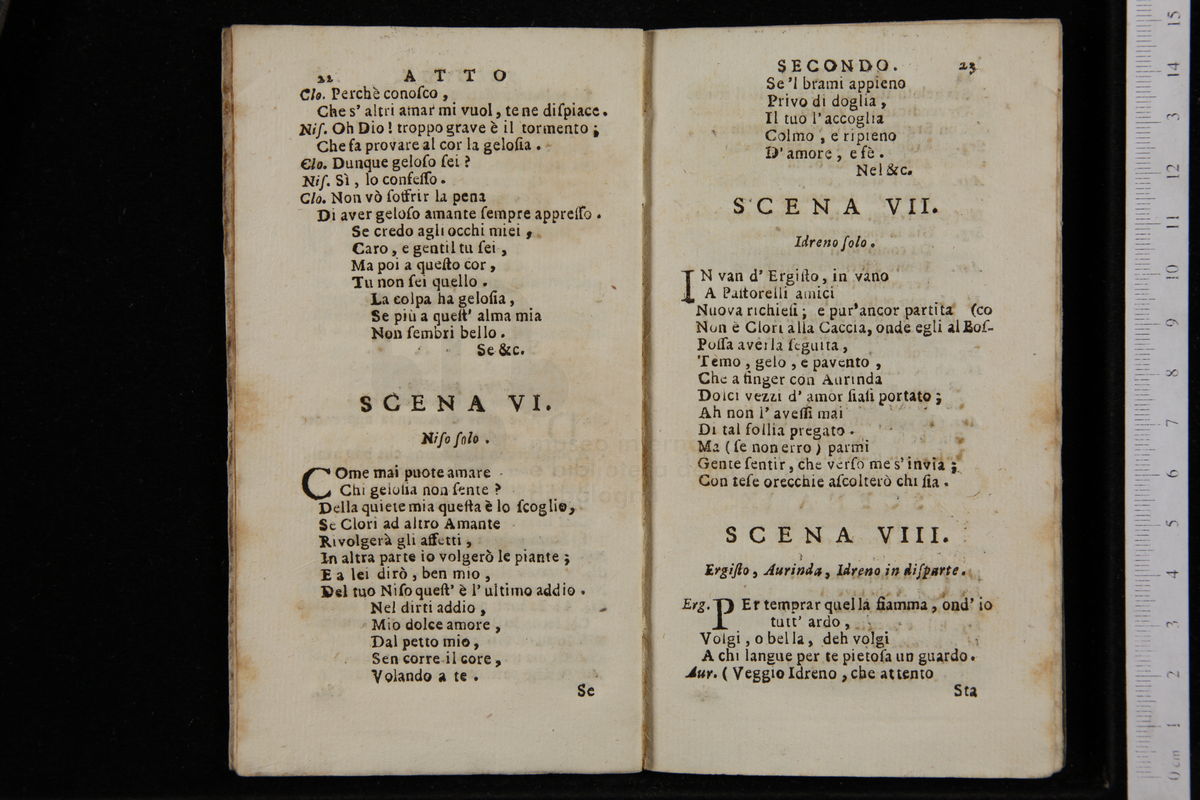 22 ATTO
Clo. Perchè conoſco,
Che s'altri amar mi vuol, te ne diſpiace.
Niſ. Oh Dio! troppo grave è il tormento;
Che fa provare al cor la geloſia.
Clo. Dunque geloſo ſei?
Niſ. Sì, lo confeſſo.
Clo. Non vò ſoffrir la pena
Di aver geloſo amante ſempre appreſſo.
Se credo agli occhi miei,
Caro, e gentil tu ſei,
Ma poi a queſto cor,
Tu non ſei quello.
La colpa ha geloſia,
Se più a queſt' alma mia
Non ſembri bello.
Se &c.
SCENA VI.
Niſo ſolo.
COme mai puote amare
Chi geloſia non ſente?
Della quiete mia queſta è lo ſcoglio,
Se Clori ad altro Amante
Rivolgerà gli affetti,
In altra parte io volgerò le piante;
E a lei dirò, ben mio,
Del tuo Niſo queſt' è l'ultimo addio.
Nel dirti addio,
Mio dolce amore,
Dal petto mio,
Sen corre il core,
Volando a te.
Se
SECONDO. 23
Se'l brami appieno
Privo di doglia,
Il tuo l'accoglia
Colmo, e ripieno
D'amore, e fè.
Nel &c.
SCENA VII.
Idreno ſolo.
IN van d'Ergiſto, in vano
A Paſtorelli amici
Nuova richieſi; e pur'ancor partita (co
Non è Clori alla Caccia, onde egli al Boſ-
Poſſa averla ſeguita,
Temo, gelo, e pavento,
Che a finger con Aurinda
Dolci vezzi d'amor ſiaſi portato;
Ah non l'aveſſi mai
Di tal follia pregato.
Ma (ſe non erro) parmi
Gente ſentir, che verſo me s'invia;
Con teſe orecchie aſcolterò chi ſia.
SCENA VIII.
Ergiſto, Aurinda, Idreno in diſparte.
Erg. PEr temprar quella fiamma, ond'io
tutt' ardo,
Volgi, o bella, deh volgi
A chi langue per te pietoſa un guardo.
Aur. (Veggio Idreno, che attento
Sta